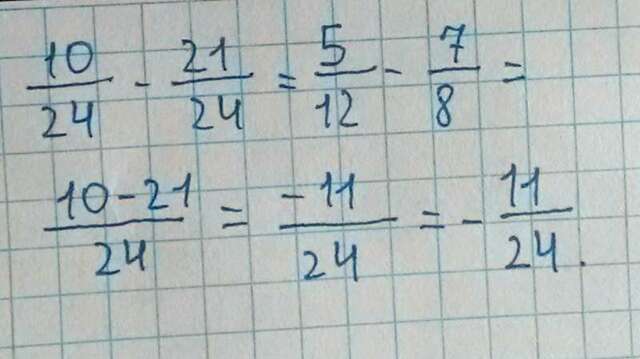 10/24 - 21/24 = 5/12 - 7/8 =
10-21/24 = -11/24 = - 11/24.